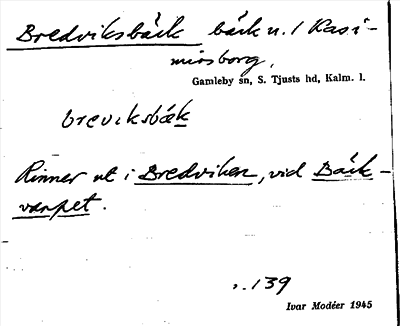 Bredviksbäck bäck n. l Kasi-
mirsborg,
Gamleby sn, S. Tjusts hd, Kalm. l.
breviksbæk
Rinner ut i Bredviken, vid Bäck-
varpet.
s. 139
Ivar Modéer 1945